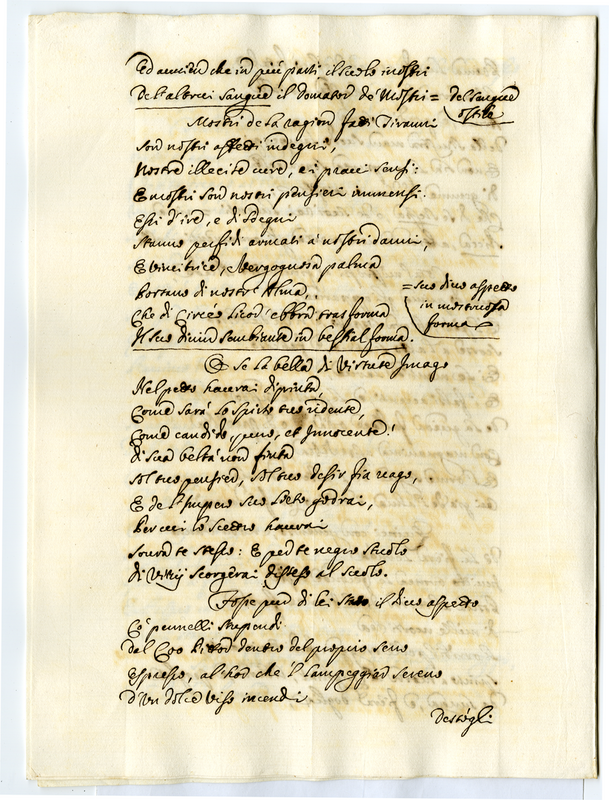 Ed avvien che in più parti il suolo inostri
De l'altrui sangue il domator de' Mostri = del sangue
ostile
Mostri de la ragion fatti Tiranni
Son nostri affetti indegni,
Nostre illecite cure, e i pravi sensi:
E mostri son nostri pensieri immensi.
Essi d'ire, e di sdegni
Stanno perfidi armati a' nostri danni,
E vincitrice, e vergognosa palma
Portano di nostr' Alma,
= suo divo aspetto
in mostruosa
forma
Che di Circeo licor' ebbra trasforma
Il suo divin sembiante in bestial forma.
O se la bella di Virtute Imago
Nel petto haurai dipinta,
Come sarà lo spirto tuo ridente,
Come candido, puro, et Innocente!
di sua beltà non finta
Sol tuo pensier, sol tuo desir fia vago,
E de l'impero suo lieto godrai,
Per cui lo scettro haurai
Sovra te stesso: E per te negro stuolo
di Vitij scorgerai disteso al suolo.
Fosse pur di lei stato il divo aspetto
Co' pennelli stupendi
dal Coo Pittor dentro del proprio seno
Espresso, al hor che 'l lampeggiar sereno
d'Un dolce viso incendi